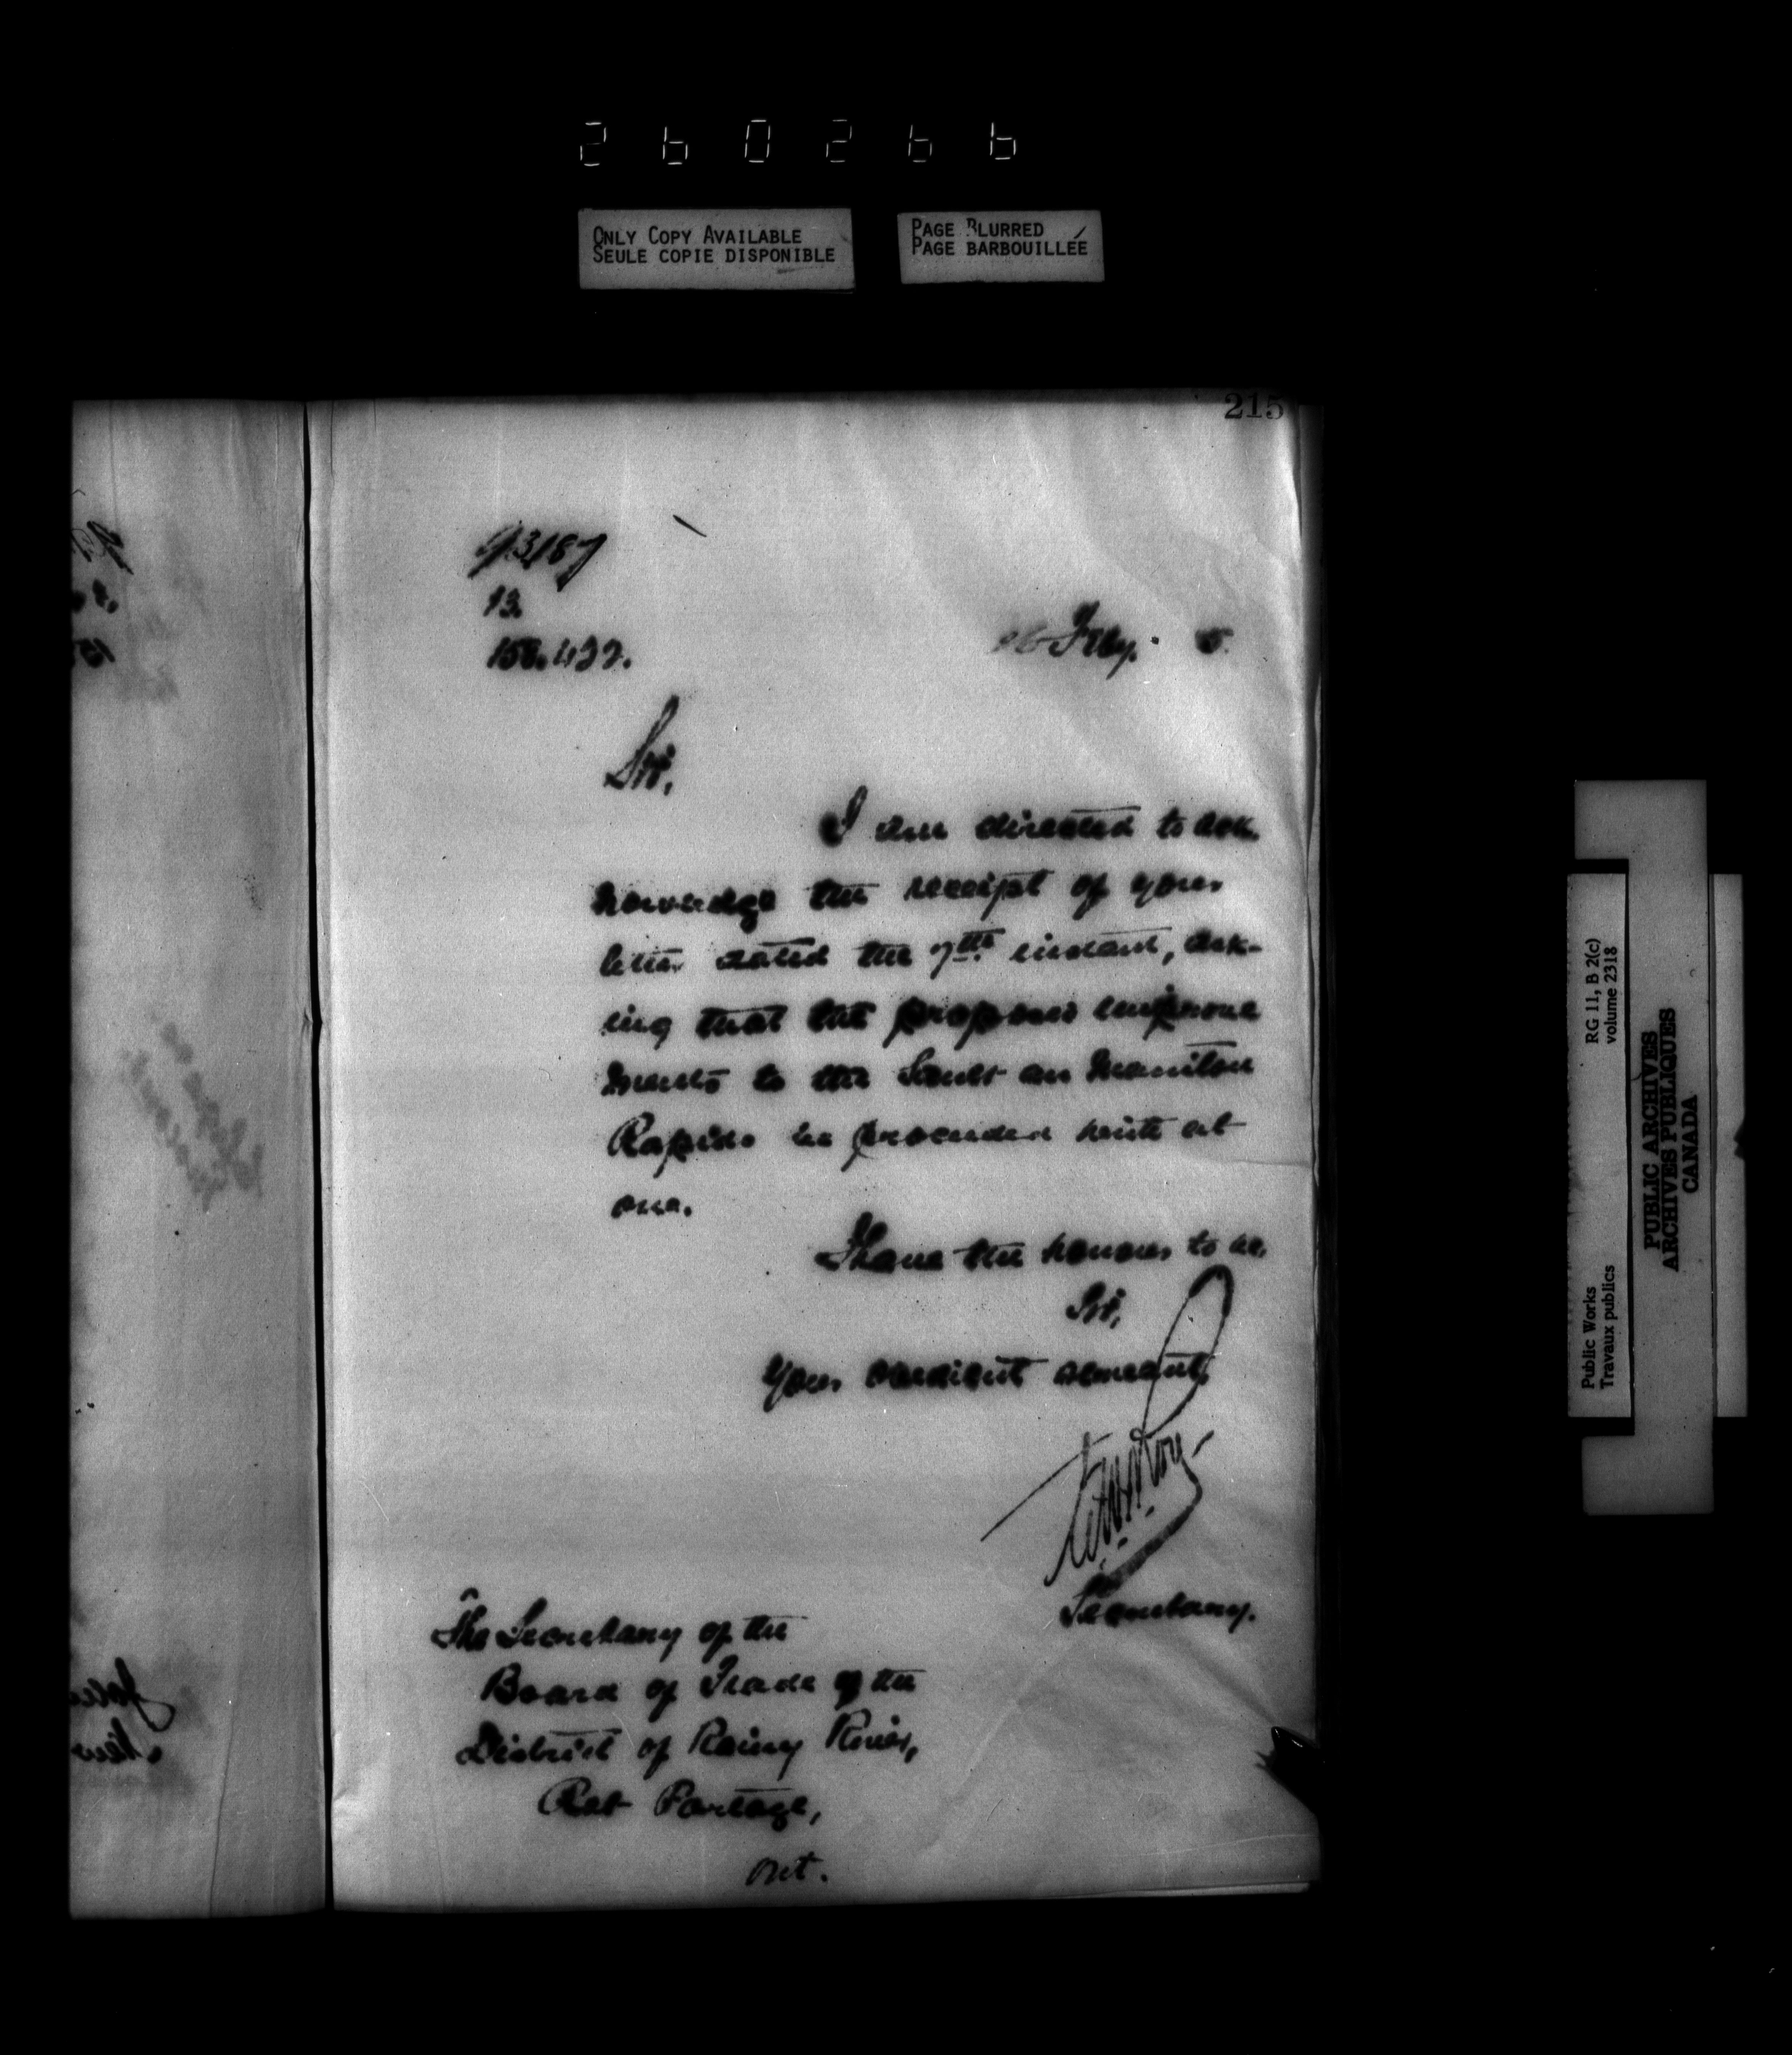 260266
ONLY COPY AVAILABLE
SEULE COPIE DISPONIBLE
PAGE BLURRED
PAGE BARBOUILLÉE
215
13.
Feby. 5
Sir,
I am directed to ack
nowledge the receipt of your
letter dated the 7th. instant, ask-
ing that the proposed improve
ments to the Sault au Manitou
Rapids be proceeded with at
once.
I have the honour to be,
Sir,
Your obedient servant,
Secretary.
The Secretary of the
Board of Trade of the
District of Rainy River,
Rat Portage,
Ont.
Public Works
Travaux publics
RG 11, B 2(c)
volume 2318
PUBLIC ARCHIVES
ARCHIVES PUBLIQUES
CANADA